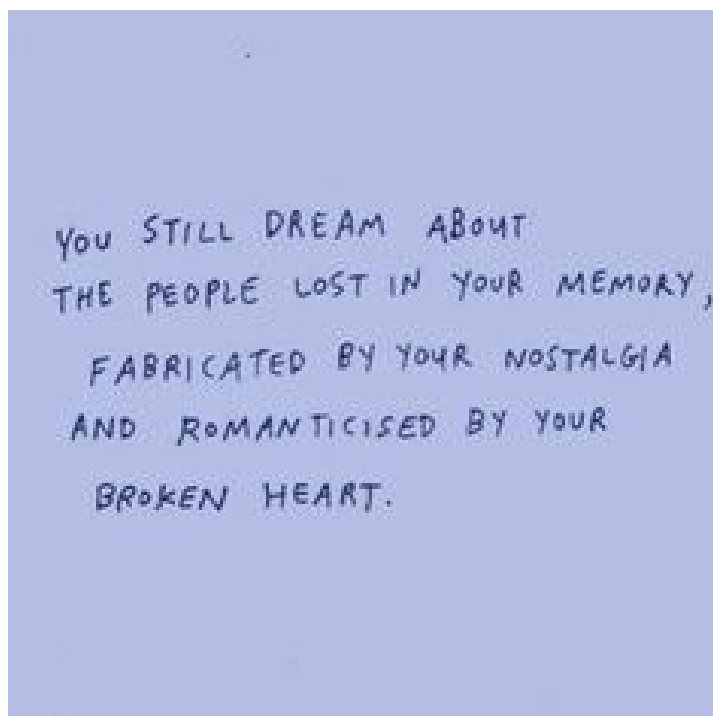 YOU STILL DREAM ABOUT
THE PEOPLE LOST IN YOUR MEMORY,
FABRICATED BY YOUR NOSTALGIA
AND ROMANTICISED BY YOUR
BROKEN HEART.